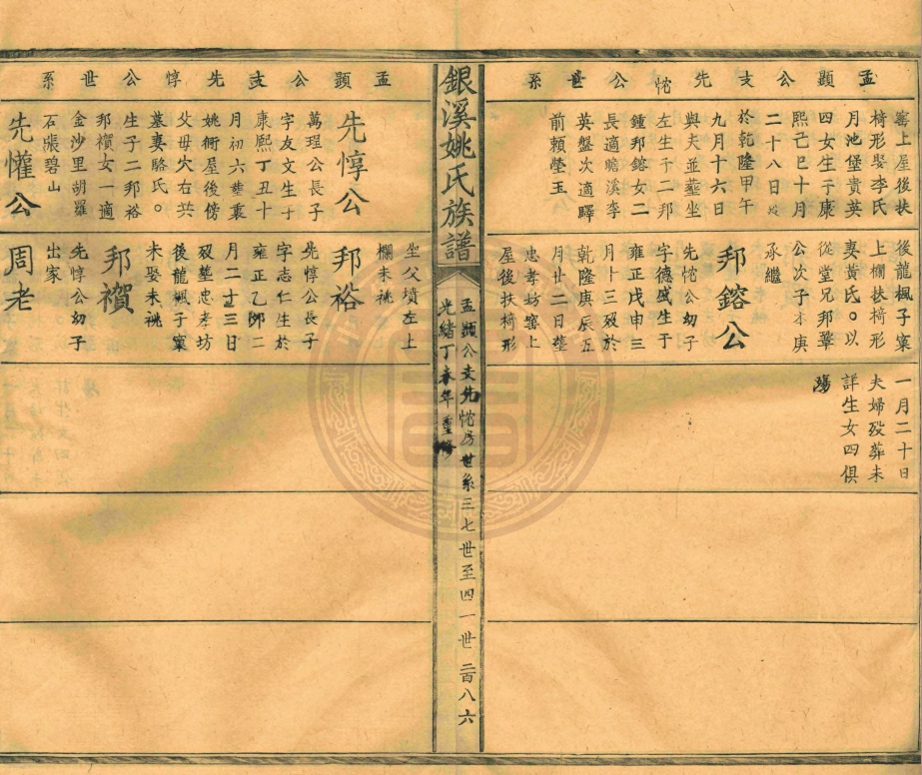 孟顥公支先㤞公世系
窰上屋後扶
椅形娶李氏
月池堡貴英
四女生于康
熙己巳十月
二十八日歿
於乾隆甲午
九月十六日
與夫並塟坐
左生子二邦
鍾邦鎔女二
長適瞻溪李
英盤次適驛
前賴瑩玉
後龍楓子窠
上欄扶椅形
娶黃氏。以
從堂兄邦鞏
公次子才庚
承繼
邦鎔公
先㤞公幼子
字德盛生于
雍正戊申三
月十三歿於
乾隆庚辰五
月廿二日塟
忠孝坊窰上
屋後扶椅形
一月二十日
夫婦歿葬未
詳生女四俱
殤
銀溪姚氏族譜
孟顥公支先㤞房世系三七世至四一世 二百八六
光緒丁未年重修
孟顥公支先惇公世系
先惇公
萬瑆公長子
字友文生于
康熙丁丑十
月初六塟裏
姚衕屋後傍
父母穴右共
墓妻駱氏。
生子二邦裕
邦穳女一適
金沙里胡羅
石張碧山
先懽公
坐父墳左上
欄未祧
邦裕
先惇公長子
字志仁生於
雍正乙卯二
月二十三日
歿塟忠孝坊
後龍楓子窠
未娶未祧
邦穳
先惇公幼子
出家
周老